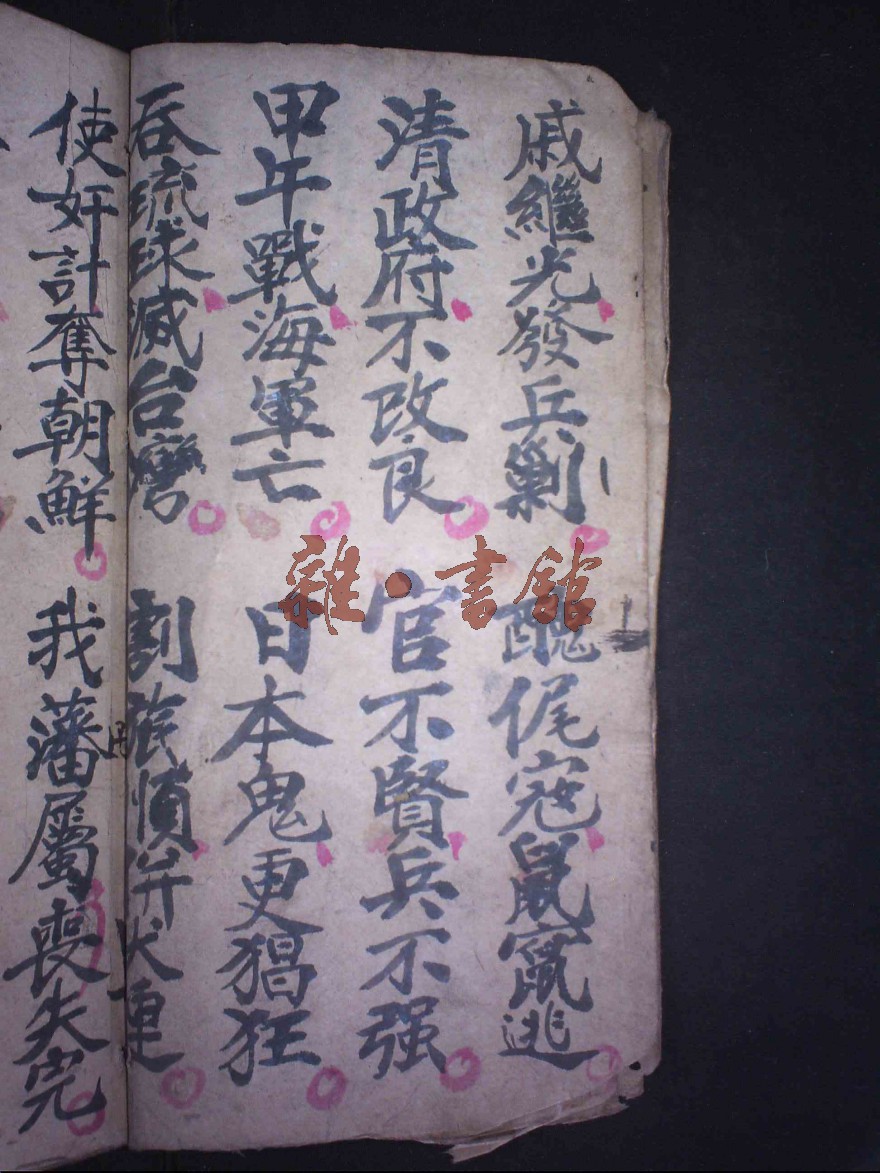 戚繼光發兵剿 醜倭寇鼠竄逃
清政府不改良 官不賢兵不强
甲午戰海軍亡 日本鬼更猖狂
吞琉球滅台灣 割旅順并大連
使奸計奪朝鮮 我藩屬喪失完
雜·書館